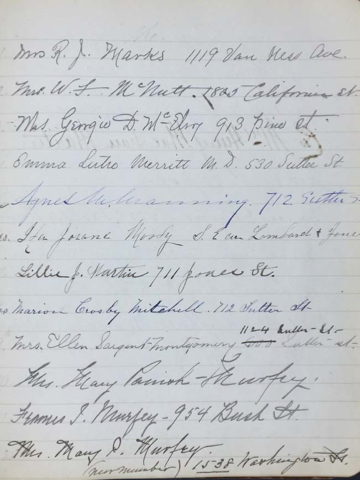 Mrs R. J. Marks 1119 Van Ness Ave.
Mrs. W. F. McNutt. 1800 California st.
Mrs. Georgie D. McElroy 913 Pine st.
Emma Sutro Merritt M.D. 530 Sutter St
Agnes M. Manning. 712 Sutter
Ida Josane Moody S. E cor Lombard & Jones
Lillie J. Martin 711 Jones St.
Marion Crosby Mitchell. 712 Sutter St
1124 Sutter St.
Mrs. Ellen Sargent-Montgomery Sutter st
Mrs. Mary Parrish-Murfey.
Frances I. Murfey - 954 Bush St.
Mrs. Mary D. Murfey.
(new number) 1538 Washington St.